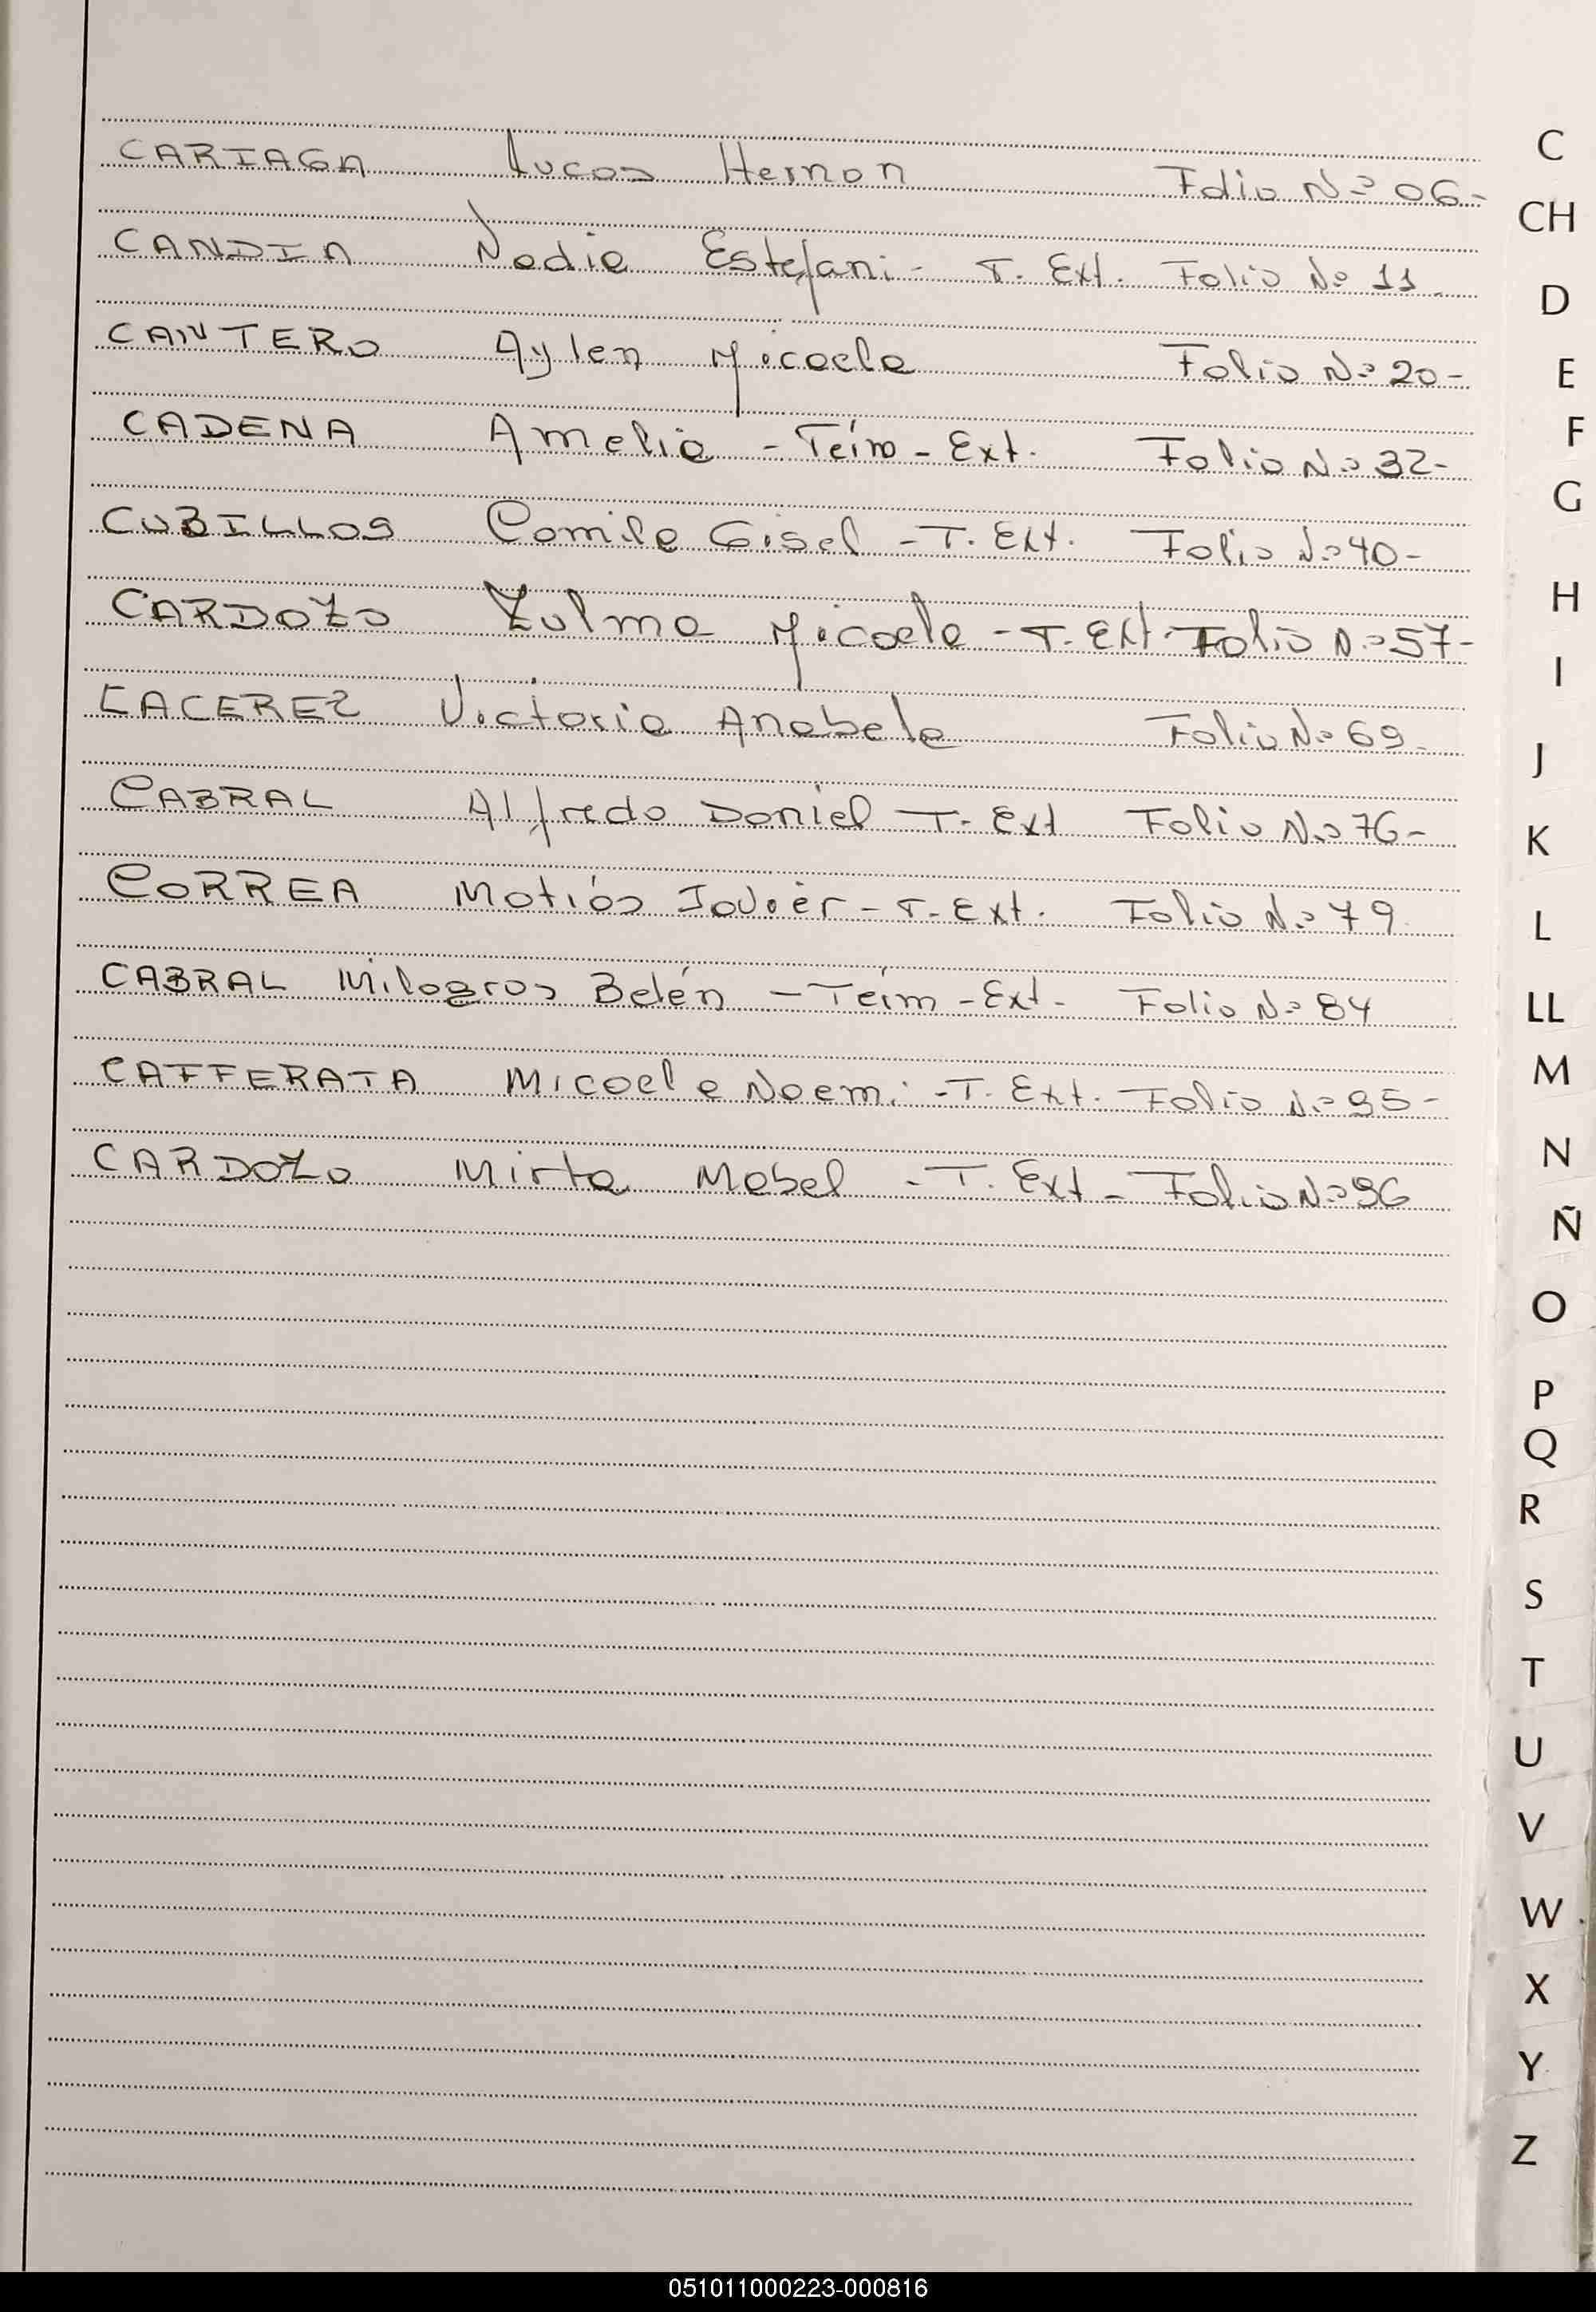 CARIAGA Lucas Hernan Folio Nº 06-
CANDIA Nadia Estefani - T. Ext. Folio Nº 11-
CANTERO Aylen Micaela Folio Nº 20-
CADENA Amelia - Térm - Ext. Folio Nº 32-
CUBILLOS Camila Gisel - T. Ext. Folio Nº 40-
CARDOZO Zulma Micaela - T. Ext. Folio Nº 57-
CACEREZ Victoria Anabela Folio Nº 69-
CABRAL Alfredo Daniel - T. Ext Folio Nº 76-
CORREA Matías Javier - T. Ext. Folio Nº 79
CABRAL Milagros Belén - Térm - Ext- Folio Nº 84
CAFFERATA Micaela Noemi - T. Ext. Folio Nº 95-
CARDOZO Mirta Mabel - T. Ext - Folio Nº 96
C
CH
D
E
F
G
H
I
J
K
L
LL
M
N
Ñ
O
P
Q
R
S
T
U
V
W
X
Y
Z
051011000223-000816